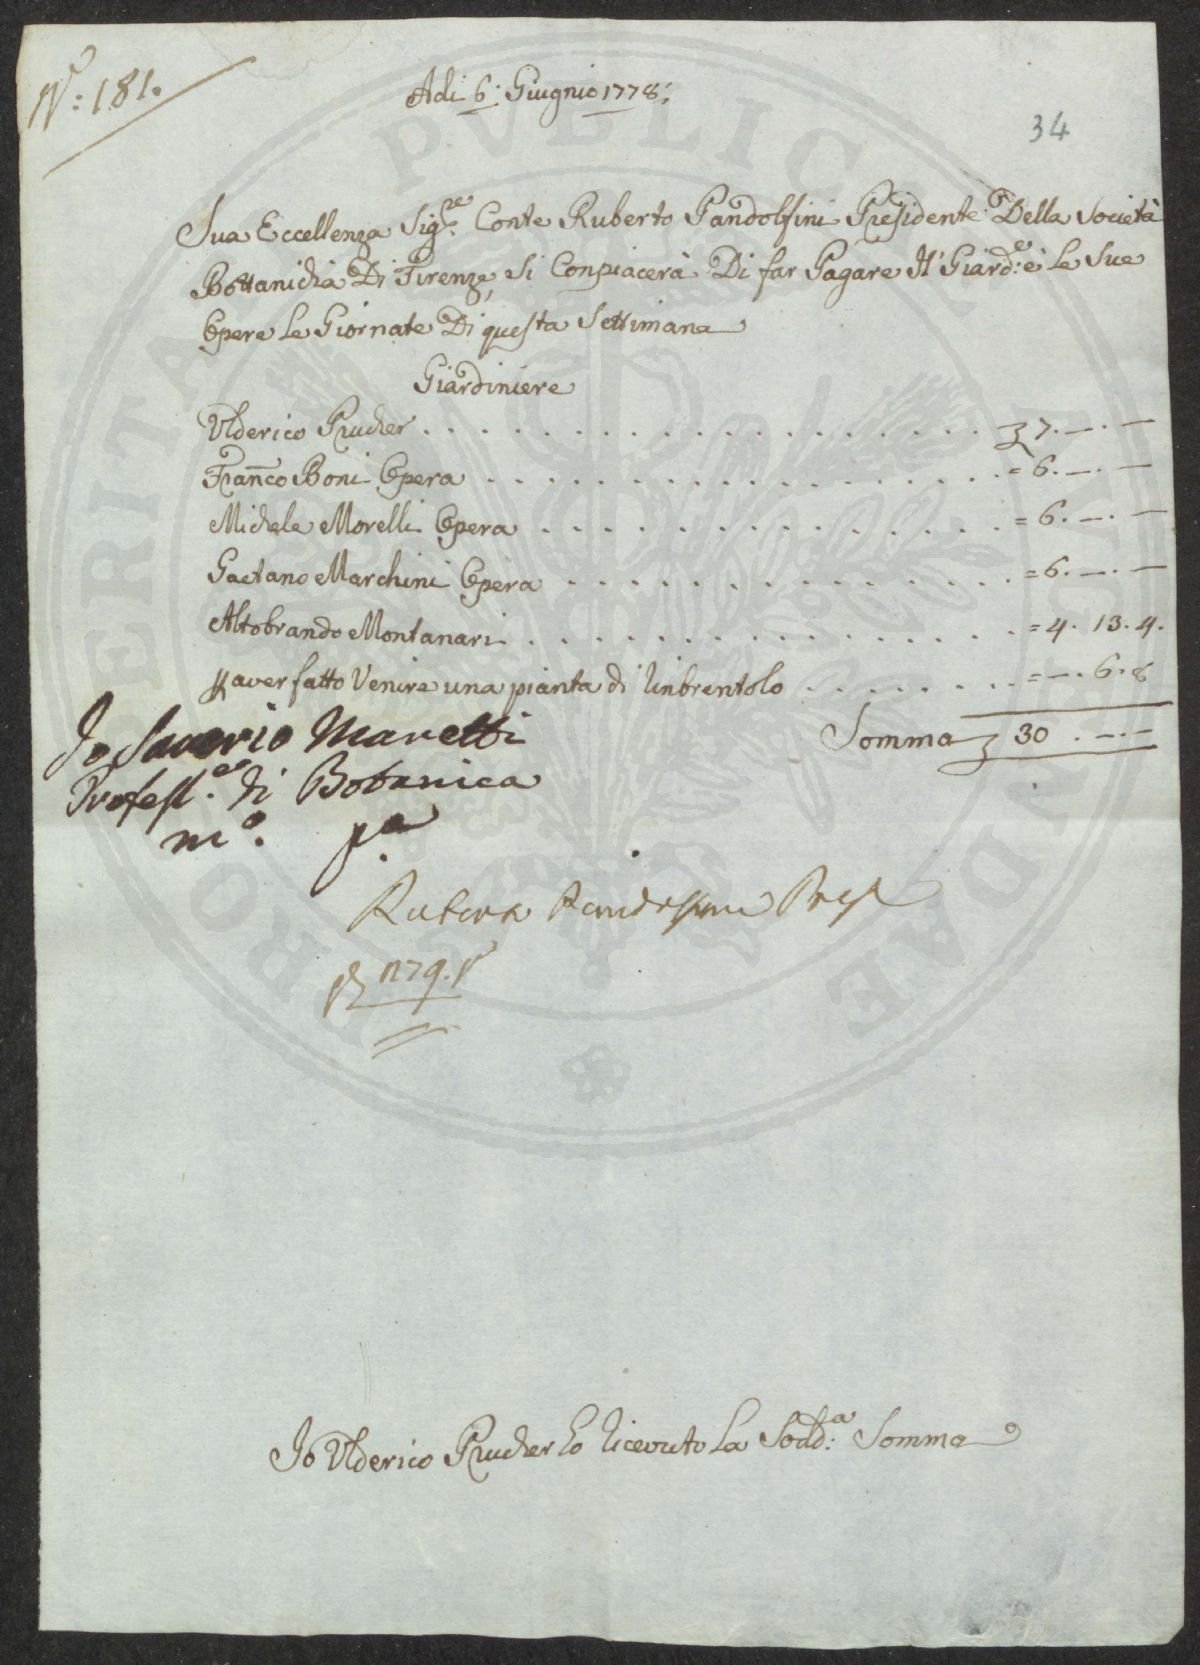 N.º: 181.
Adi 6: Giugnio 1778;
34
Sua Eccellenza Sig.re Conte Ruberto Pandolfini Presidente Della Società
Bottanicha Di Firenze, si Conpiacerà Di far Pagare Il Giard.e: e le Sue
Opere le Giornate Di questa Settimana
Giardiniere
Ulderico Prucher . . . . . . . . . . . . . . . . . 7. —. —
Fran.co Boni Opera . . . . . . . . . . . . . . . = 6. —. —
Michele Morelli Opera . . . . . . . . . . . . . . = 6. —. —
Gaetano Marchini Opera . . . . . . . . . . . . . = 6. —. —
Altobrando Montanari . . . . . . . . . . . . . . = 4. 13. 4.
p aver fatto Venire una pianta di linbrentolo . . . . . . . = —. 6. 8
Somma 30. —. —
Io Saverio Manetti
Profess.re di Botanica
m.o p.a
Ruberto Pandolfini Pres
1279.
Io Ulderico Prucher ho ricevuto La Sodd.a: Somma
PROSPERITATI PVBLICAE AVGENDAE